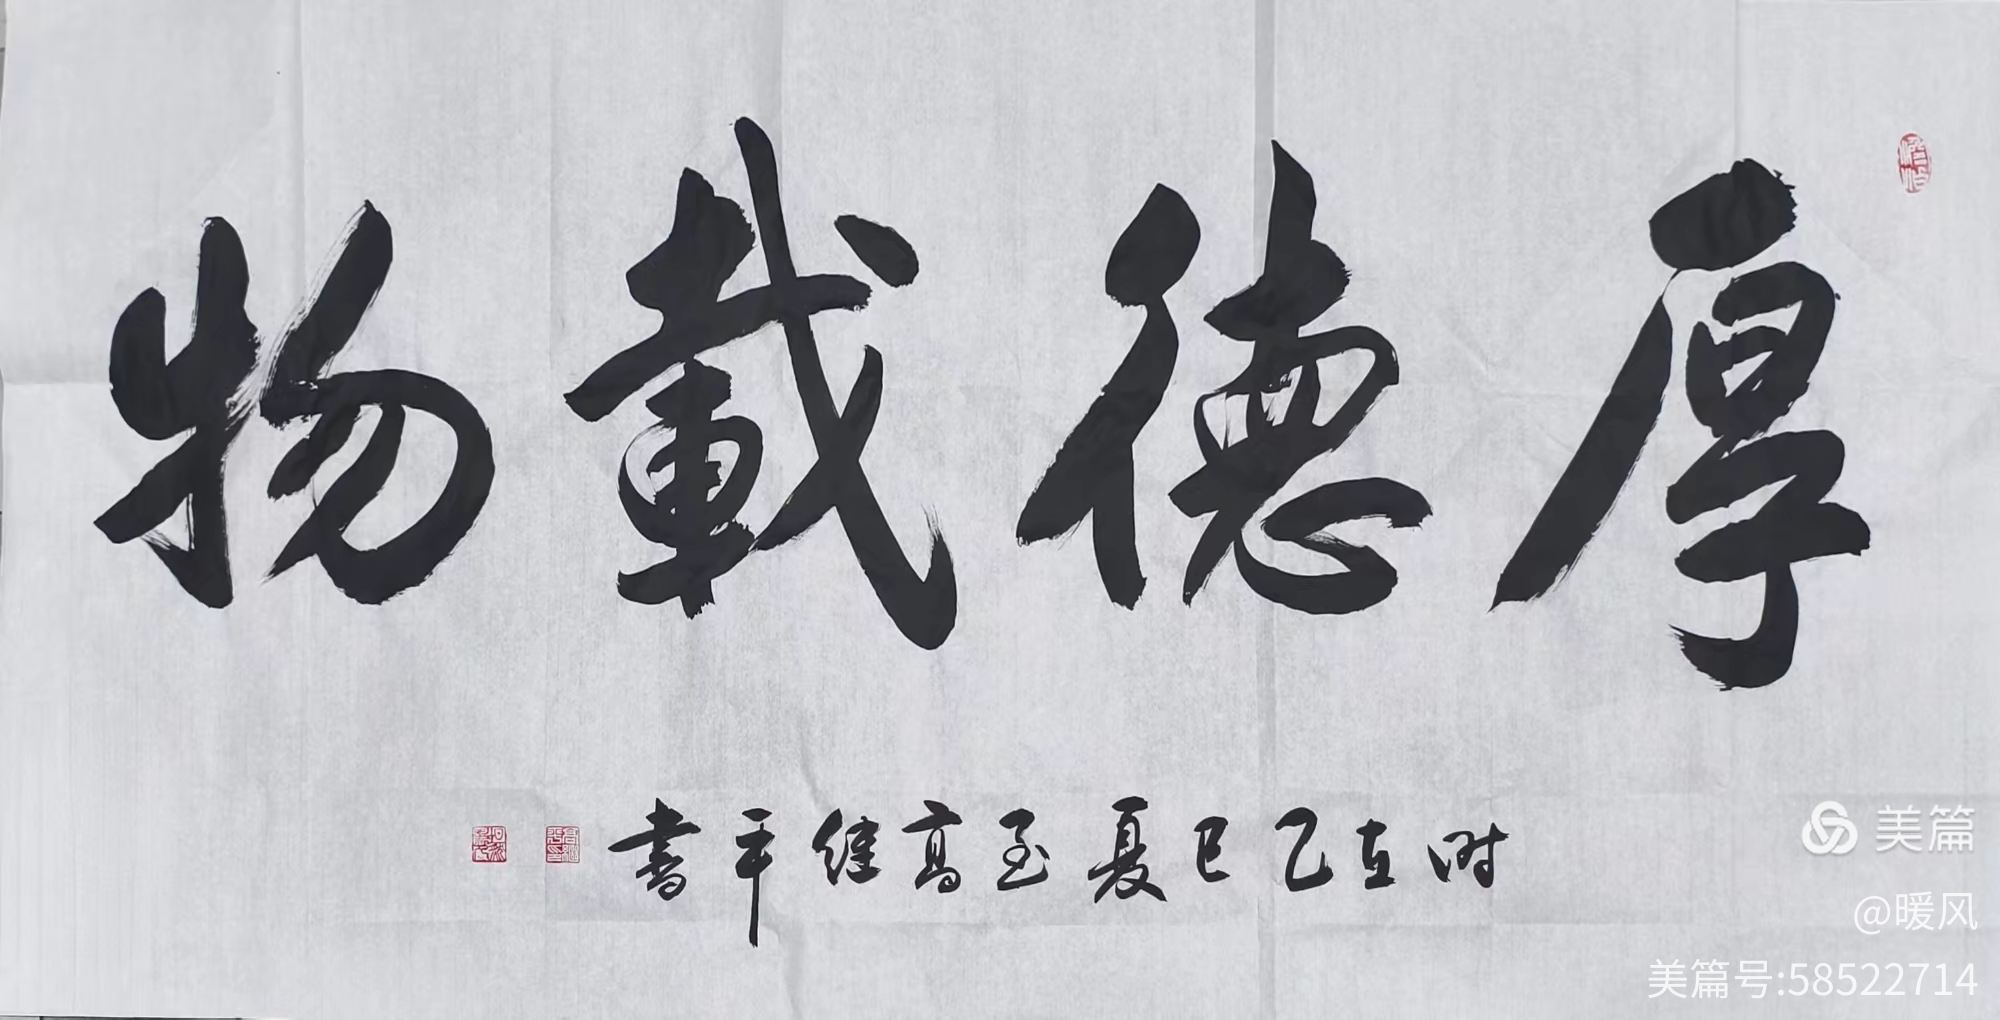 厚德載物
时在乙巳夏至高继平書
美篇
@暖风
美篇号:58522714